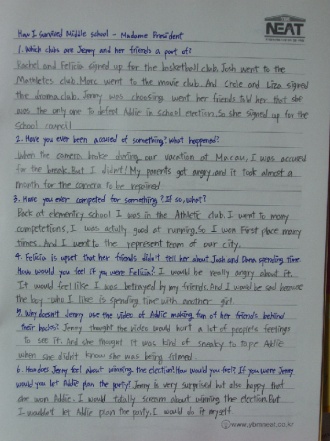 NEAT
How I Survived Middle school - Madame President
1. Which clubs are Jenny and her friends a part of?
Rachel and Felicia signed up for the basketball club. Josh went to the
Mathletes club. Marc went to the movie club. And Chole and Liza signed
the drama club. Jenny was choosing went her friends told her that she
was the only one to defeat Addie in school election. So she signed up for the
school council
2. Have you ever been accused of something? What happened?
When the camera broke during our vacation at Macau, I was accused
for the break. But I didn't! My parents got angry and it took almost a
month for the camera to be repaired
3. Have you ever competed for something? If so, what?
Back at elementry school I was in the Athletic club. I went to many
competitions. I was actully good at running. So I won First place many
times. And I went to the represent team of our city.
4. Felicia is upset that her friends didn't tell her about Josh and Dana spending time.
How would you feel if you were Felicia? I would be really angry about it.
It would feel like I was betrayed by my friends. And I would be sad because
the boy who I like is spending time with another girl.
5. Why doesn't Jenny use the video of Addie making fun of her friends behind
their backs? Jenny thought the video would hurt a lot of people's feelings
to see it. And she thought it was kind of sneaky to tape Addie
when she didn't know she was being filmed.
6. How does Jenny feel about winning the election? How would you feel? If you were Jenny
would you let Addie plan the party? Jenny is very surprised but also happy that
she won Addie. I would totally scream about winning the election. But
I wouldn't let Addie plan the party. I would do it myself.
www.ybmneat.co.kr